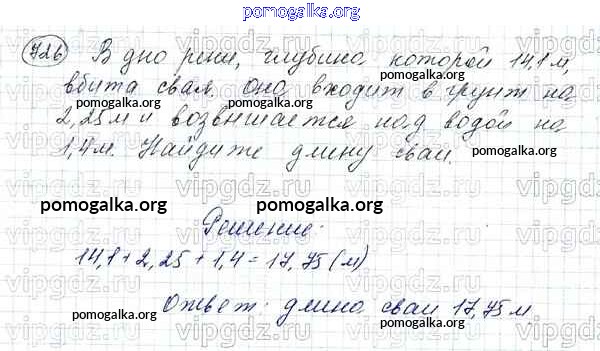 pomogalka.org
726 В дно реки, глубина которой 14,1 м,
вбита свая. она входит в грунт на
2,25 м и возвышается над водой на
1,4 м. Найдите длину сваи.
Решение:
14,1 + 2,25 + 1,4 = 17,75 (м)
Ответ: длина сваи 17,75 м
pomogalka.org
pomogalka.org
pomogalka.org
pomogalka.org
pomogalka.org
pomogalka.org
pomogalka.org
pomogalka.org
pomogalka.org
vipgdz.ru
vipgdz.ru
vipgdz.ru